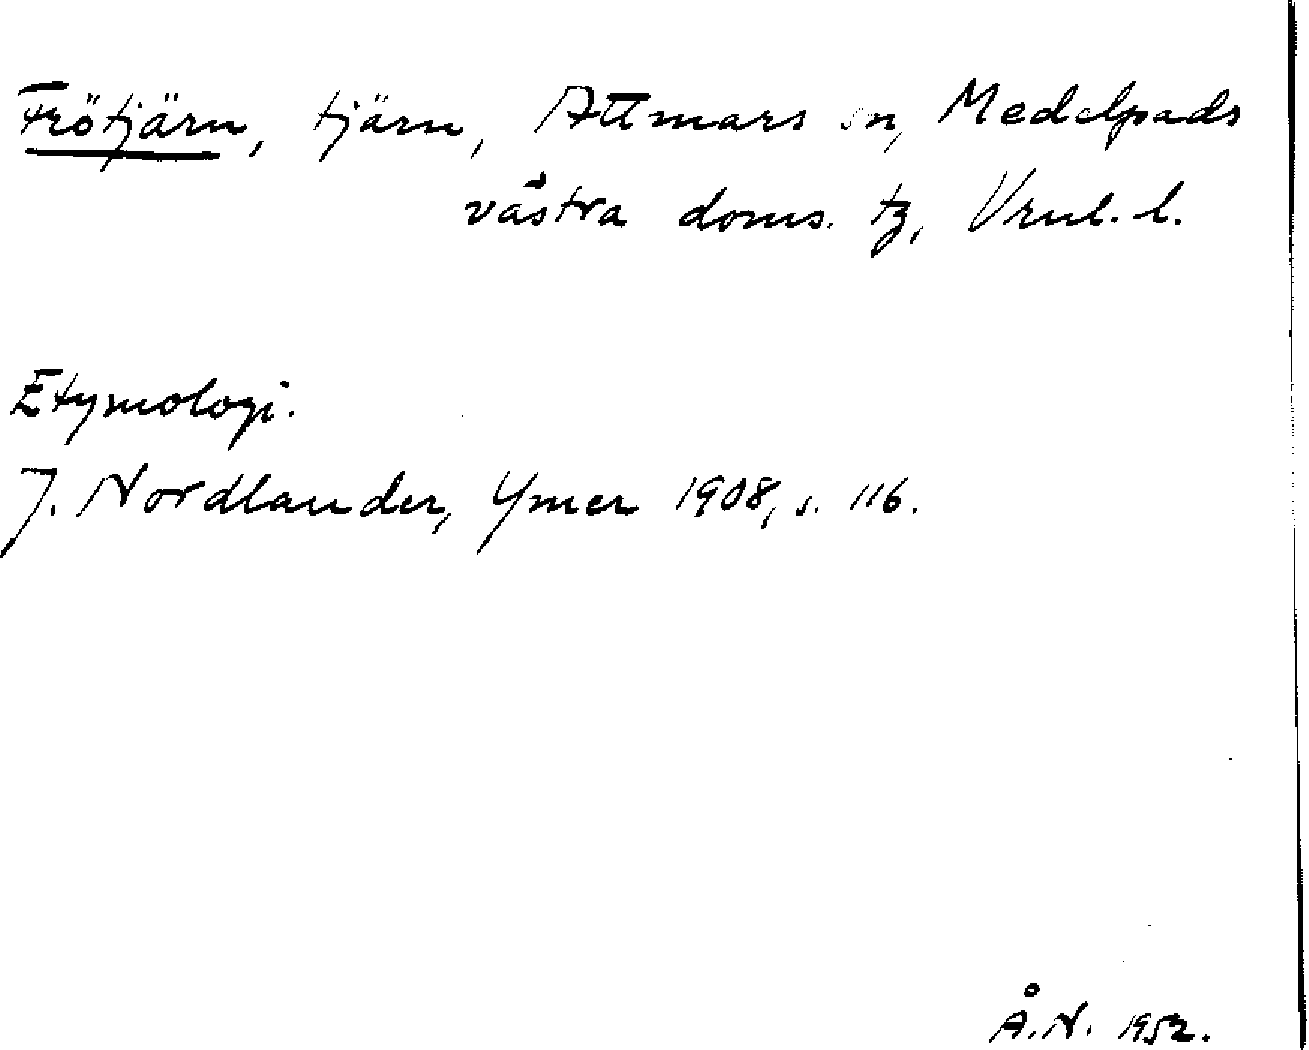 Frötjärn, tjärn, Attmars sn, Medelpads
västra doms. tg, Vrnl. l.
Etymologi.
J. Nordlander, Ymer 1908, s. 116.
Å.N. 1952.